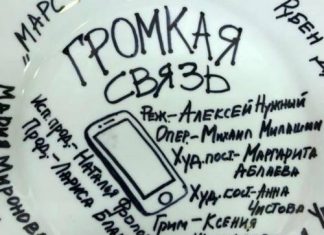 "МАРС
РУБЕН
ГРОМКАЯ
СВЯЗЬ
РЕЖ.-АЛЕКСЕЙ НУЖНЫЙ
ОПЕР.- МИХАИЛ МИЛАШИН
ХУД. ПОСТ- МАРГАРИТА
АБЛАЕВА
ХУД. КОСТ-АННА
ЧИСТОВА
ГРИМ - КСЕНИЯ
ИСП. ПРОД- НАТАЛЬЯ
ПРОД.- ЛАРИСА
МАРИЯ МИРОНОВА